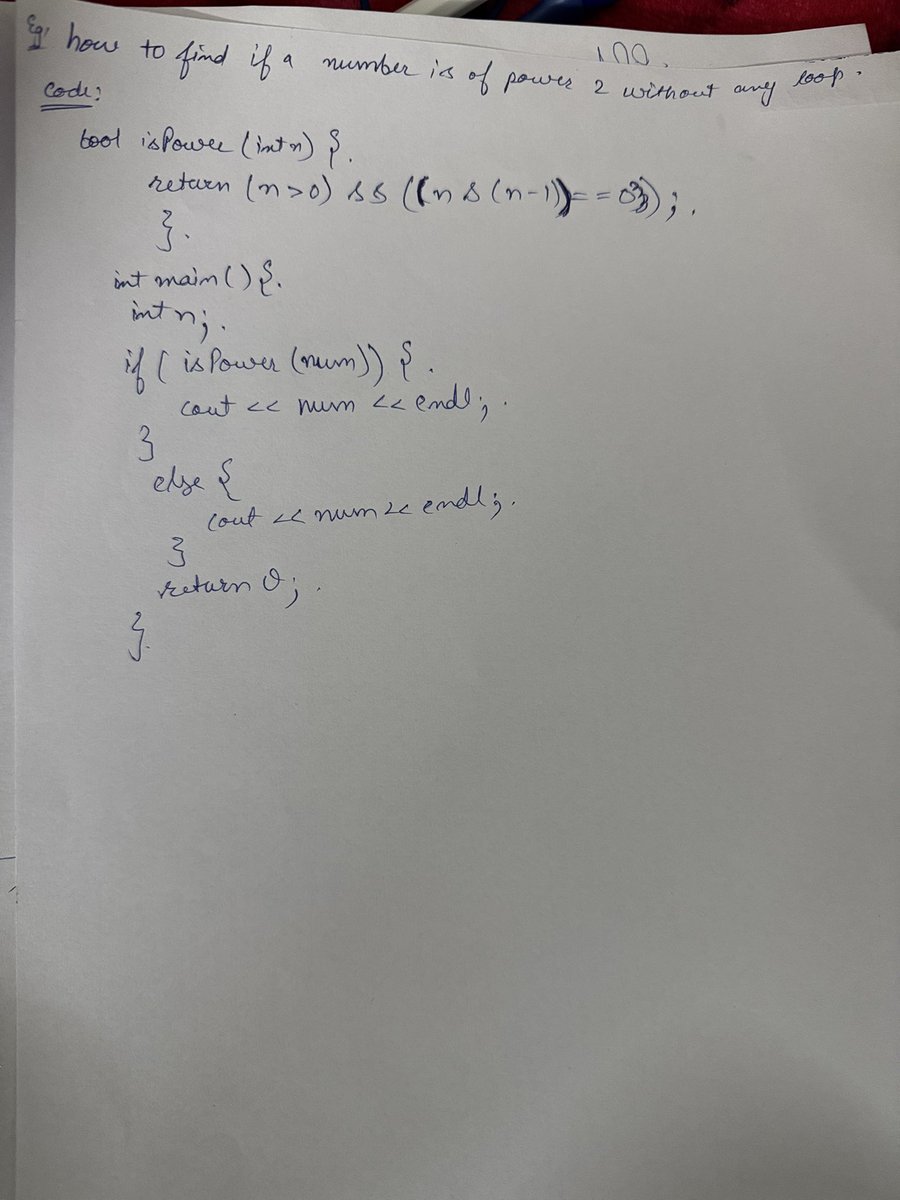 Eg: how to find if a number is of power 2 without any loop.
Code:
bool isPower (int n) {.
return (n>0) && ((n & (n-1))==0);.
}.
int main() {.
int n;.
if ( isPower (num)) {.
cout << num << endl;.
}
else {
cout << num << endl;.
}
return 0;.
}.